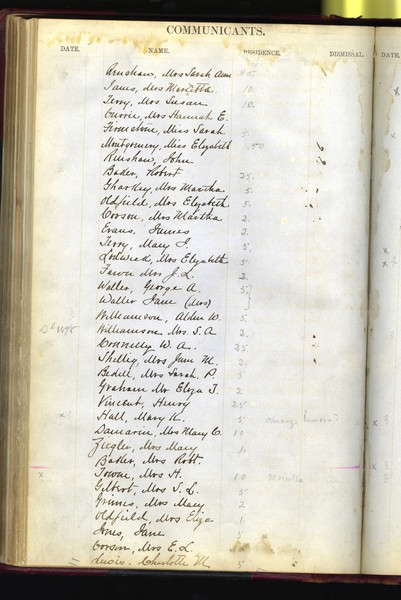 COMMUNICANTS.
DATE. NAME. RESIDENCE. DISMISSAL. DATE.
Renshaw, Mrs Sarah Ann
James, Mrs Marietta 10
Terry, Mrs Susan 10.
Currie, Mrs Hannah E.
Firmstone, Miss Sarah 5
Montgomery, Miss Elizabeth .50
Renshaw, John
Baker, Robert 25.
Gharkey, Mrs Marsha 5.
Oldfield, Mrs Elizabeth 5.
Corson, Mrs Martha 2.
Evans, James 2.
Terry, Mary J. 5.
Lodwick, Mrs Elizabeth 5
Mrs J. L. 2.
Waller, George A. 5
Waller Jane (Mrs)
Williamson, Alden W. 5
Williamson Mrs. S. A 2.
Connelly W. A. 25
Mrs Jane M. 2.
Bedell, Mrs Sarah. P. 3
Graham Mr Eliza J. 2
Vincent, Henry 25
x Hall, Mary K. 5
Damarin, Mrs Mary C. 10
Ziegler, Mrs Mary 1.
Baker, Mrs Robt.
x Towne, Mrs H. 10
Gilbert, Mrs S. L. 5
Grimes, Mrs Mary 2
Oldfield, Mrs Eliza 1
Jones, Jane 5
Corson, Mrs E. L.
Charlotte M. 5